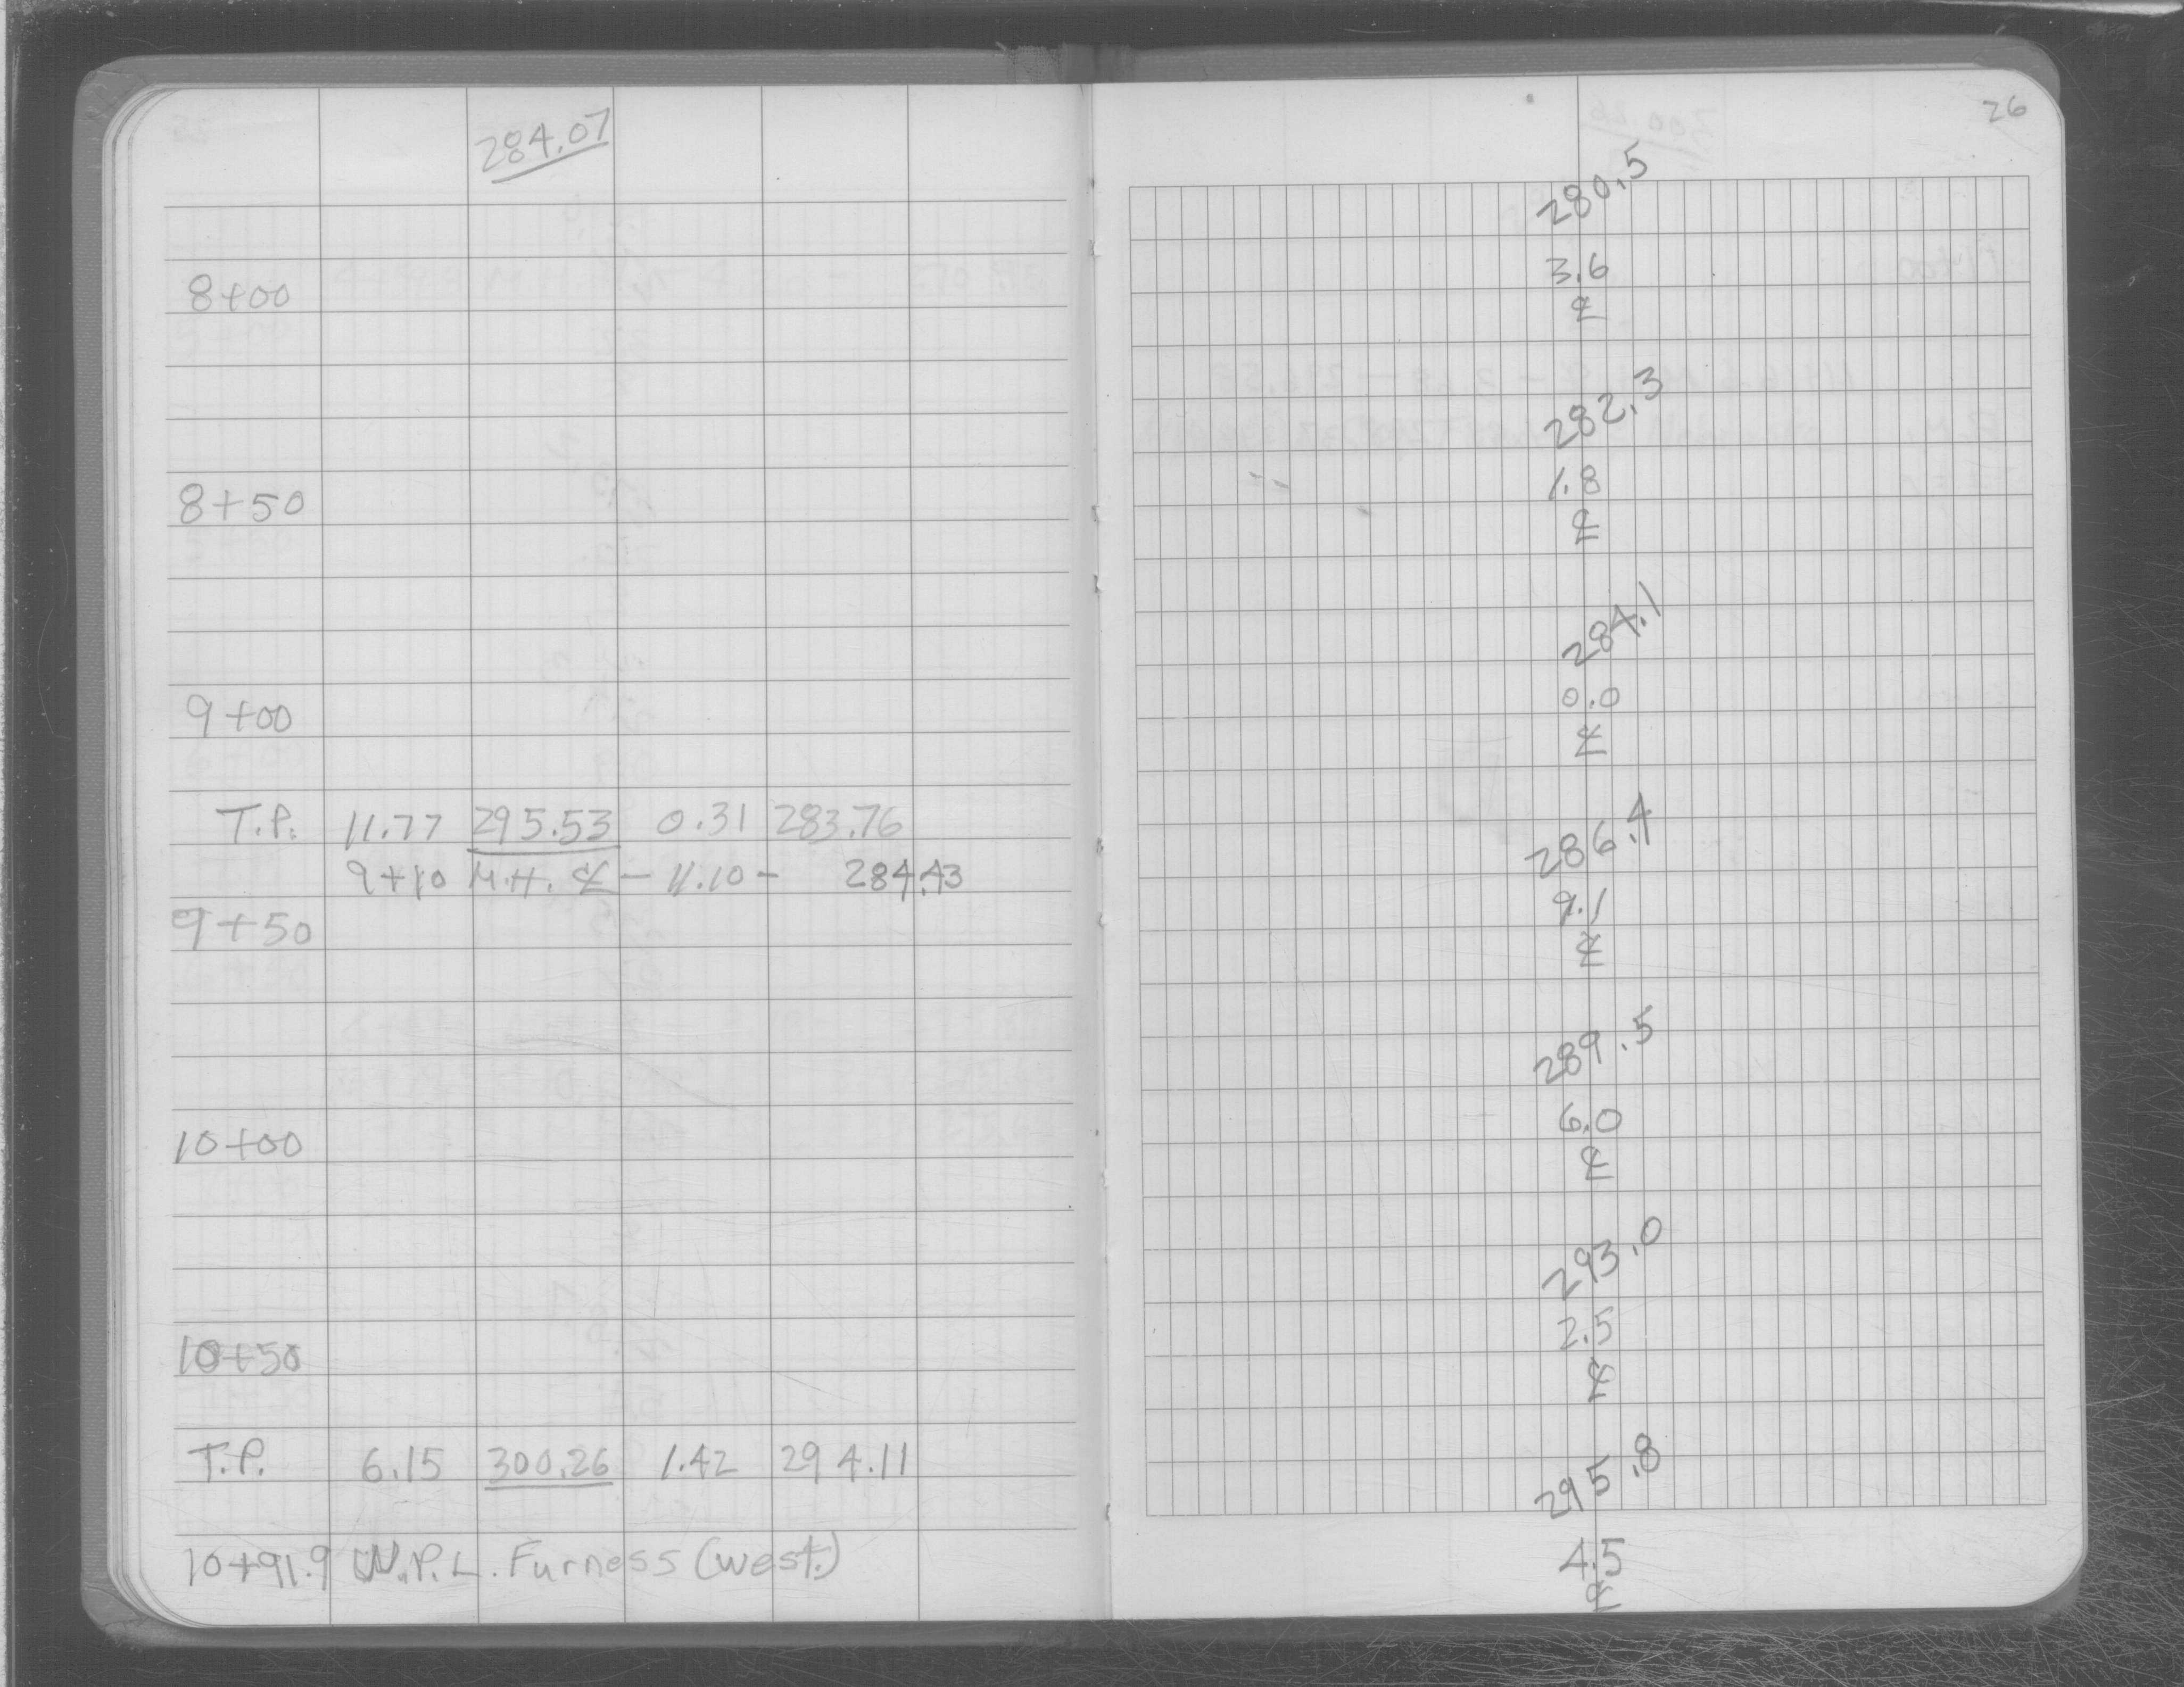 284.07
8+00
8+50
9+00
T.P. 11.77 295.53 0.31 283.76
9+10 M.H. ℄ - 11.10 - 284.43
9+50
10+00
10+50
T.P. 6.15 300.26 1.42 294.11
10+91.9 W.P.L. Furness (west.)
26
280.5
3.6
℄
282.3
1.8
℄
284.1
0.0
℄
286.4
9.1
℄
289.5
6.0
℄
293.0
2.5
℄
295.8
4.5
℄